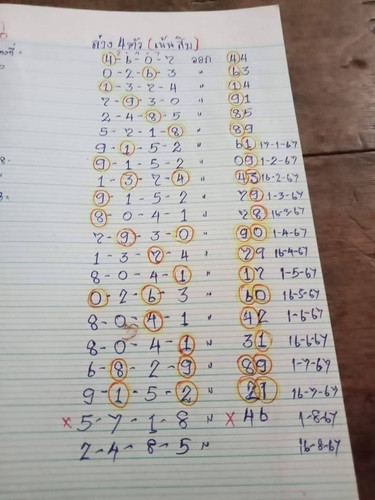 ล่าง 4 ตัว (เน้นสิบ)
4-6-0-7 ออก 44
0-2-6-3 " 63
1-3-7-4 " 14
7-9-3-0 " 91
2-4-8-5 " 85
5-7-1-8 " 89
9-1-5-2 " 61 17-1-67
9-1-5-2 " 09 1-2-67
1-3-7-4 " 43 16-2-67
9-1-5-2 " 79 1-3-67
8-0-4-1 " 78 16-3-67
7-9-3-0 " 90 1-4-67
1-3-7-4 " 79 16-4-67
8-0-4-1 " 17 1-5-67
0-2-6-3 " 60 16-5-67
8-0-4-1 " 42 1-6-67
8-0-4-1 " 31 16-6-67
6-8-2-9 " 89 1-7-67
9-1-5-2 " 21 16-7-67
× 5-7-1-8 " × 46 1-8-67
2-4-8-5 " 16-8-67